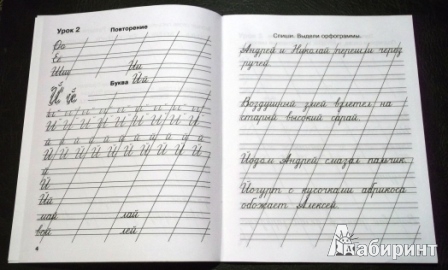 Урок 2 Повторение
Оо
Ее
Шш Ии
Йй
Буква
Й й
й
Й
Йй
май лай
вой лей
4
Спиши. Выдели орфограммы.
Андрей и Николай перешли через
ручей.
Воздушный змей взлетел на
старый высокий сарай.
Йодом Андрей смазал пальчик.
Йогурт с кусочками абрикоса
обожает Алексей.
Лабиринт